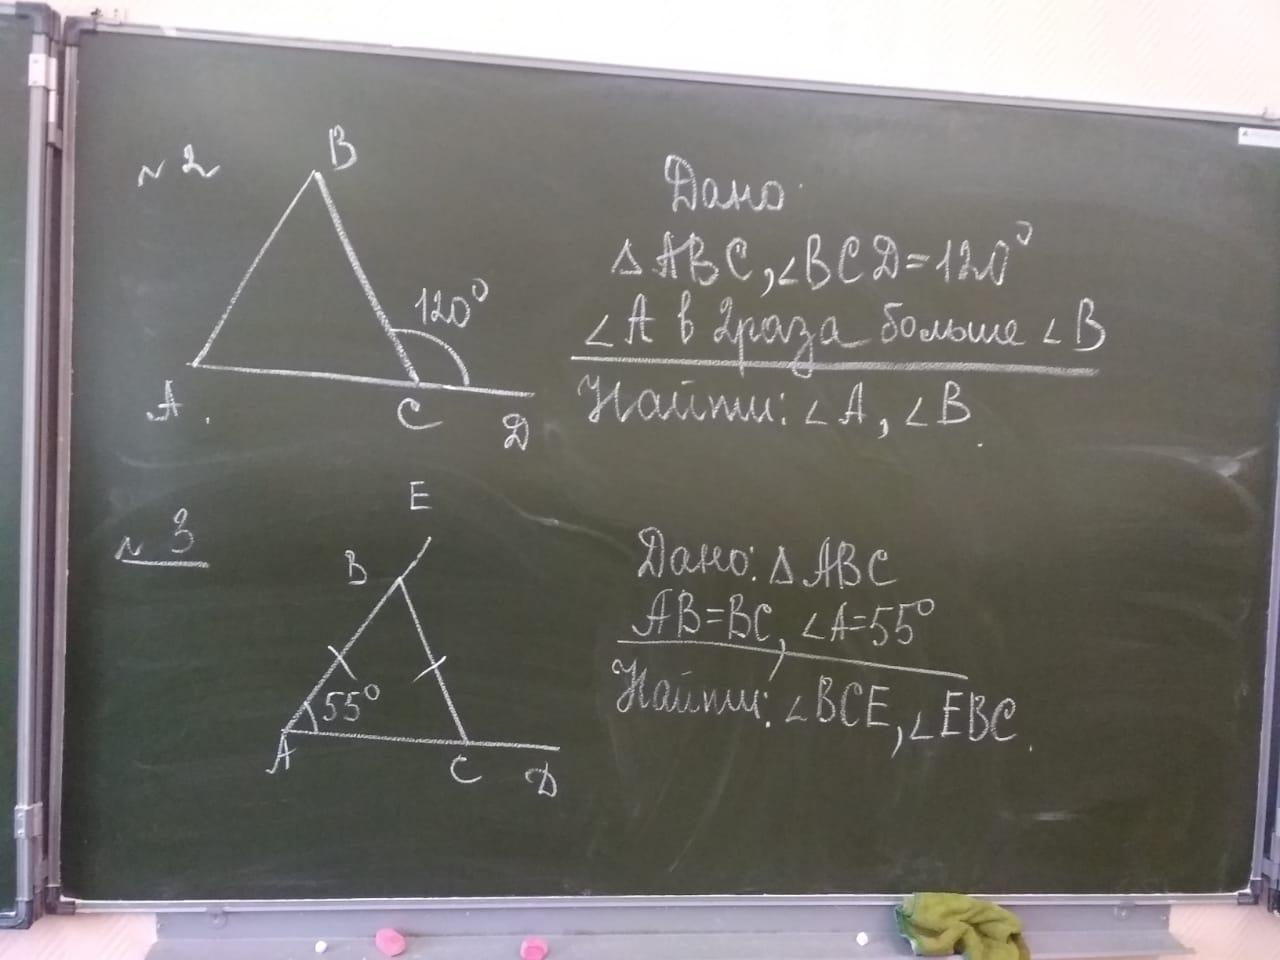 №2
B
120°
A.
C
D
Дано:
△ABC, ∠BCD=120°
∠A в 2раза больше ∠B
Найти: ∠A, ∠B.
№3
E
B
55°
A
C
D
Дано: △ABC
AB=BC, ∠A=55°
Найти: ∠BCE, ∠EBC.